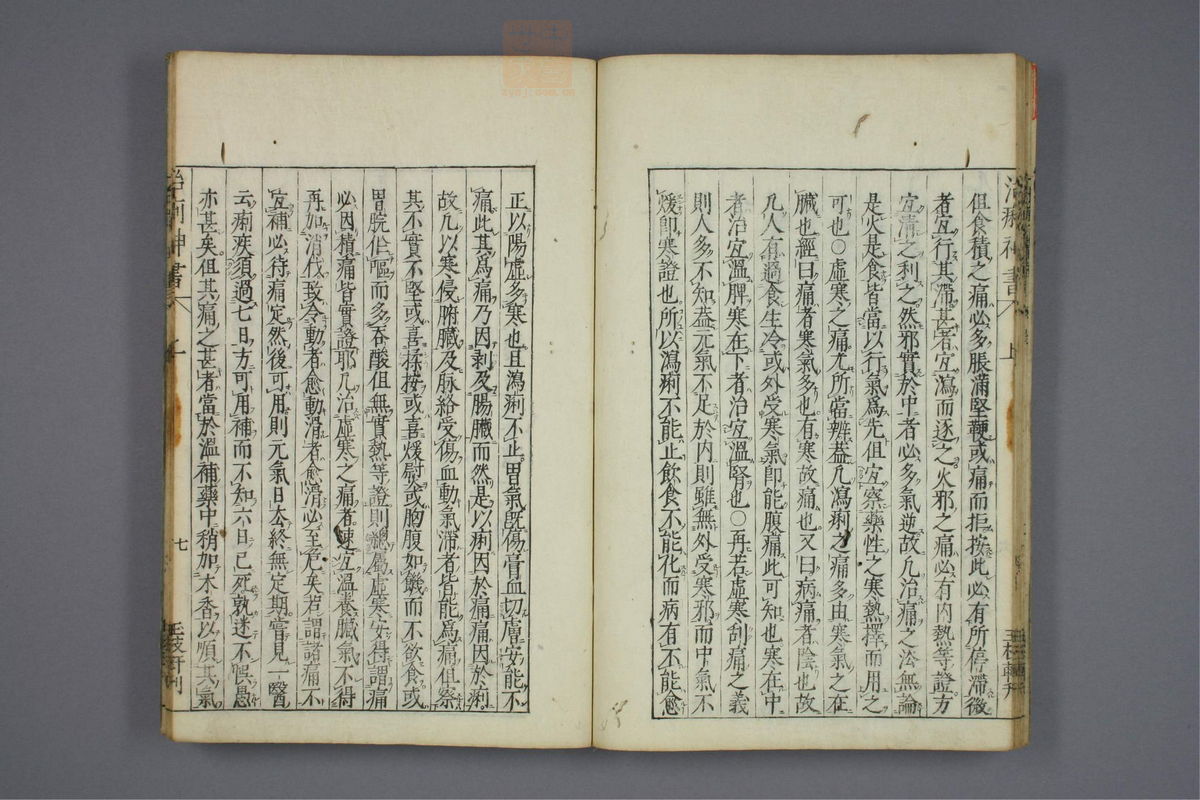 但食積之痛必多脹滿堅鞕或痛而拒按此必有所停滯微
者宜行其滯甚者宜瀉而逐之火邪之痛必有内熱等證方
宜清之利之然邪實於中者必多氣逆故凡治痛之法無論
是火是食皆當以行氣爲先但宜察藥性之寒熱擇而用之
可也○虛寒之痛尤所當辨葢凡瀉痢之痛多由寒氣之在
臟也經曰痛者寒氣多也有寒故痛也又曰病痛者陰也故
凡人有過食生冷或外受寒氣卽能腹痛此可知也寒在中
者治宜溫脾寒在下者治宜溫腎也○再若虛寒刮痛之義
則人多不知葢元氣不足於内則雖無外受寒邪而中氣不
煖卽寒證也所以瀉痢不能止飲食不能化而病有不能愈
正以陽虛多寒也且瀉痢不止胃氣旣傷膏血切膚安能不
痛此其爲痛乃因剥及腸臟而然是以痢因於痛痛因於痢
故凡以寒侵腑臟及脉絡受傷血動氣滯者皆能爲痛但察
其不實不堅或喜揉按或喜煖熨或胸腹如饑而不欲食或
胃脘作嘔而多吞酸但無實熱等證則總屬虛寒安得謂痛
必因積痛皆實證耶凡治虛寒之痛者速宜溫養臟氣不得
再加消伐致令動者愈動滑者愈滑必至危矣若謂諸痛不
宜補必待痛定然後可用則元氣日去終無定期嘗見一醫
云痢疾須過七日方可用補而不知六日已死孰迷不悞愚
亦甚矣但其痛之甚者當於溫補藥中稍加木香以順其氣
治痢神書
上
治痢神書
七